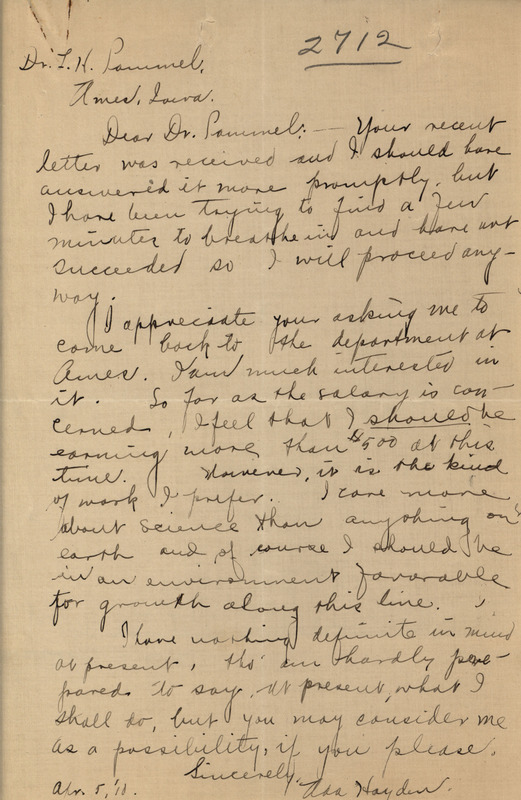 2712
Dr. L. H. Pammel,
Ames, Iowa.
Dear Dr. Pammel: — Your recent
letter was received and I should have
answered it more promptly, but
I have been trying to find a few
minutes to breathe in and have not
succeeded so I will proceed any-
way.
I appreciate your asking me to
come back to the department at
Ames. I am much interested in
it. So far as the salary is con-
cerned, I feel that I should be
earning more than $500 at this
time. However, it is the kind
of work I prefer. I care more
about science than anything on
earth and of course I should be
in an environment favorable
for growth along this line.
I have nothing definite in mind
at present, tho' am hardly pre-
pared to say, at present, what I
shall do, but you may consider me
as a possibility, if you please.
Sincerely,
Apr. 5, '10. Ada Hayden.